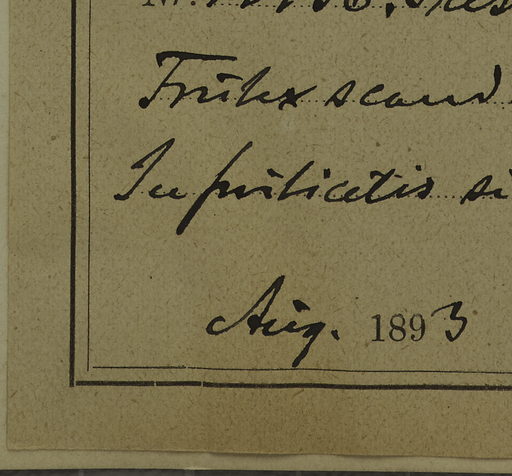 Frutex scand
In fruticetis si
Aug. 1893